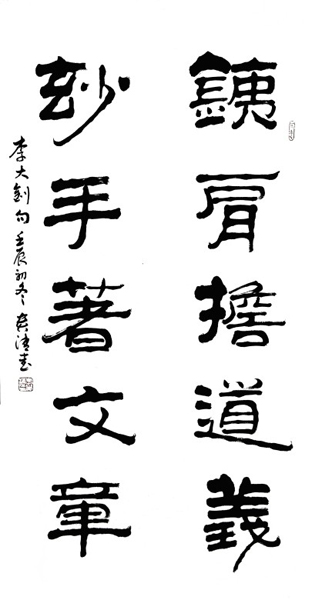 銕肩擔道義
玅手著文章
李大釗句壬辰初冬